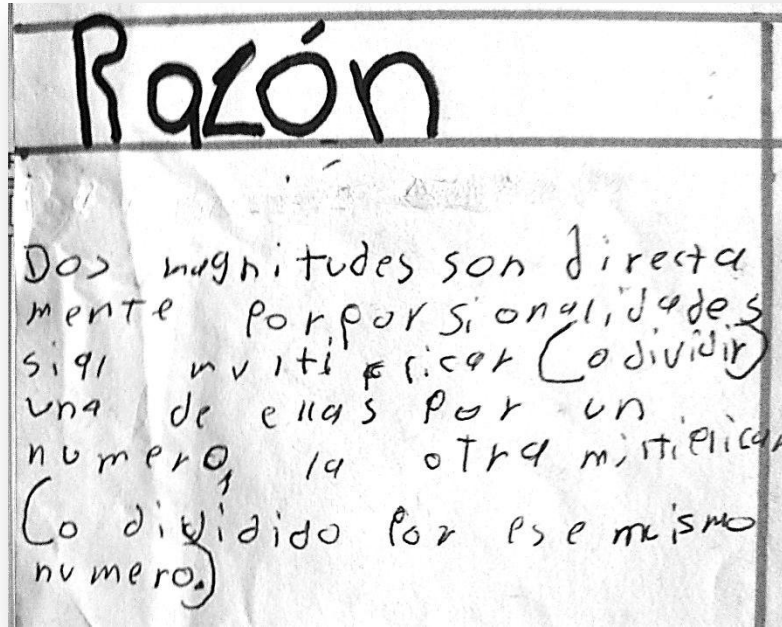 Razón
Dos magnitudes son directa
mente porporsionalidades
sial multiplicar (o dividir)
una de ellas por un
numero, la otra mistiplicar
(o dividido por ese mismo
numero.)